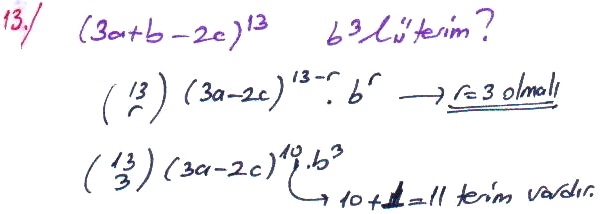 13./ (3a+b-2c)^13 b^3 lü terim?
(13 r) (3a-2c)^13-r . b^r → r=3 olmalı
(13 3) (3a-2c)^10 . b^3
→ 10+1=11 terim vardır.